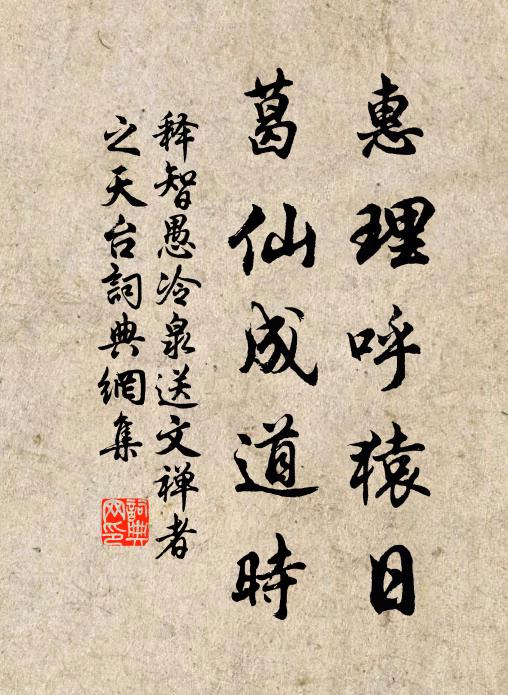 惠理呼猿日
葛仙成道時
释智愚冷泉送文禅者
之天台詞典網集
詞典网印